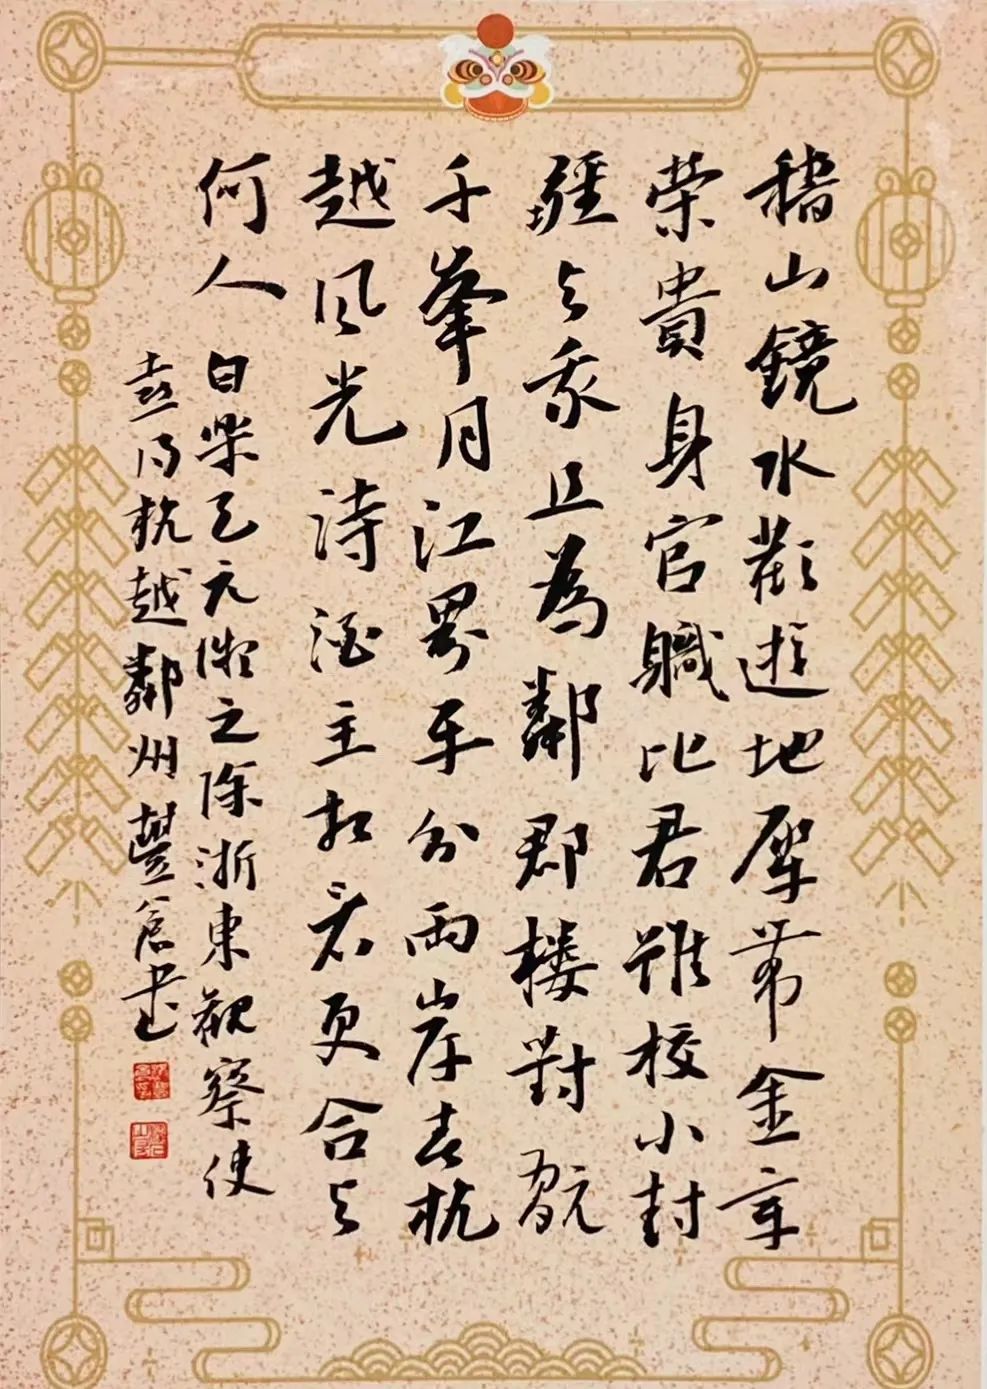 稽山鏡水歡遊地犀帶金章
榮貴身官職比君雖校小封
疆与我且為鄰郡樓對翫
千峯月江界平分兩岸春杭
越風光詩酒主相看更合与
何人
白樂天元微之除浙東觀察使
喜得杭越鄰州
書